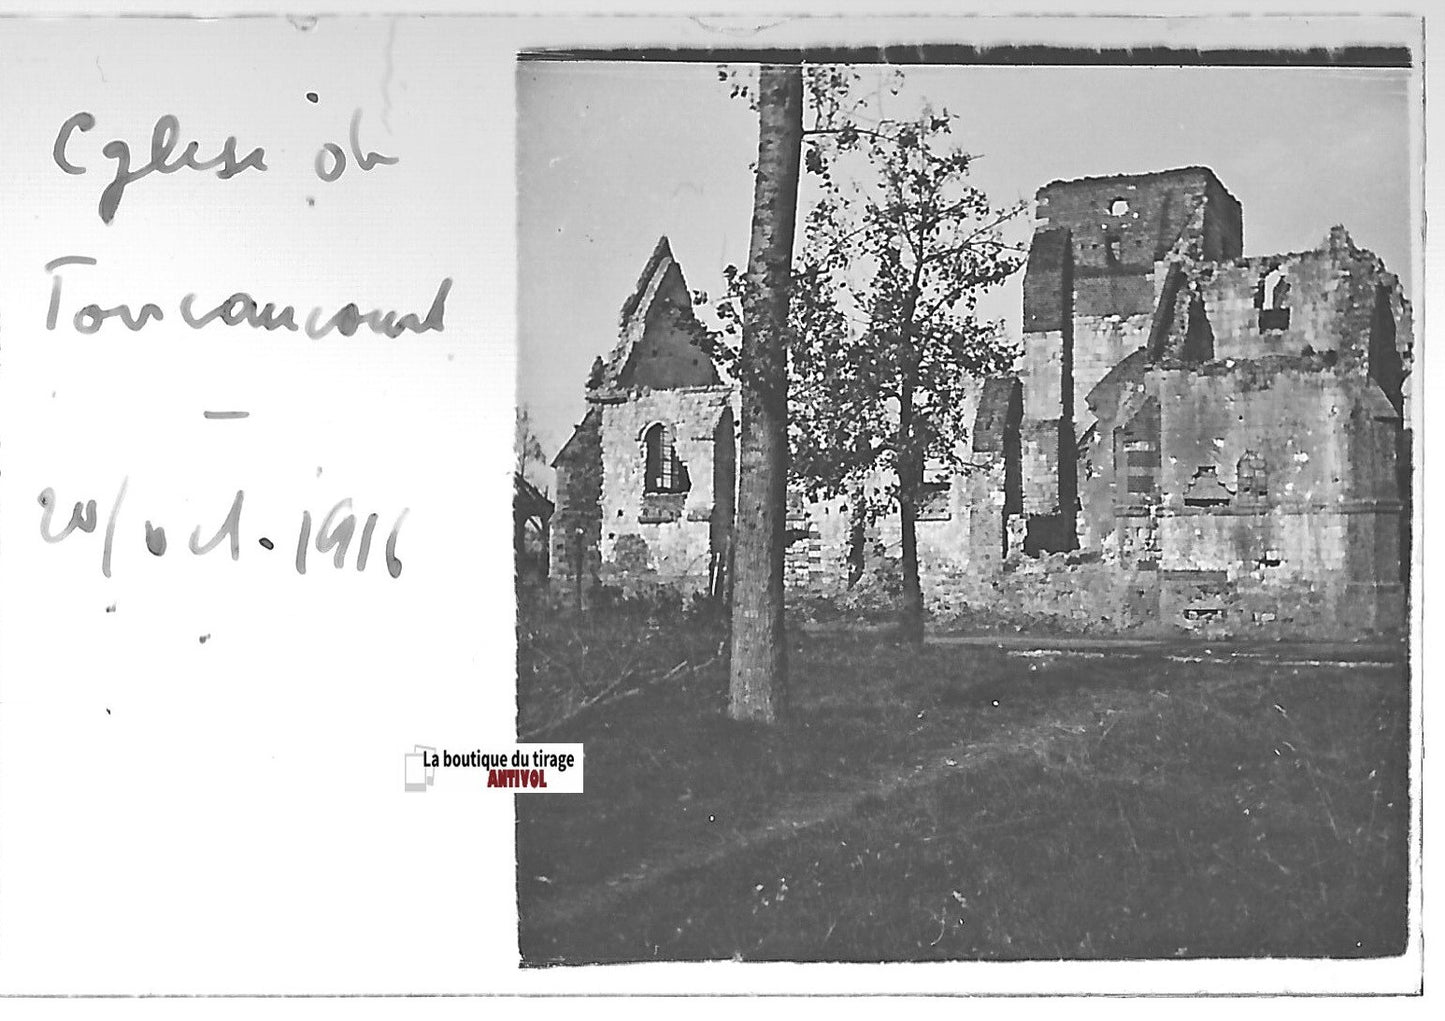 Eglise de
Toucancourt
—
20/oct. 1916
La boutique du tirage
ANTIVOL